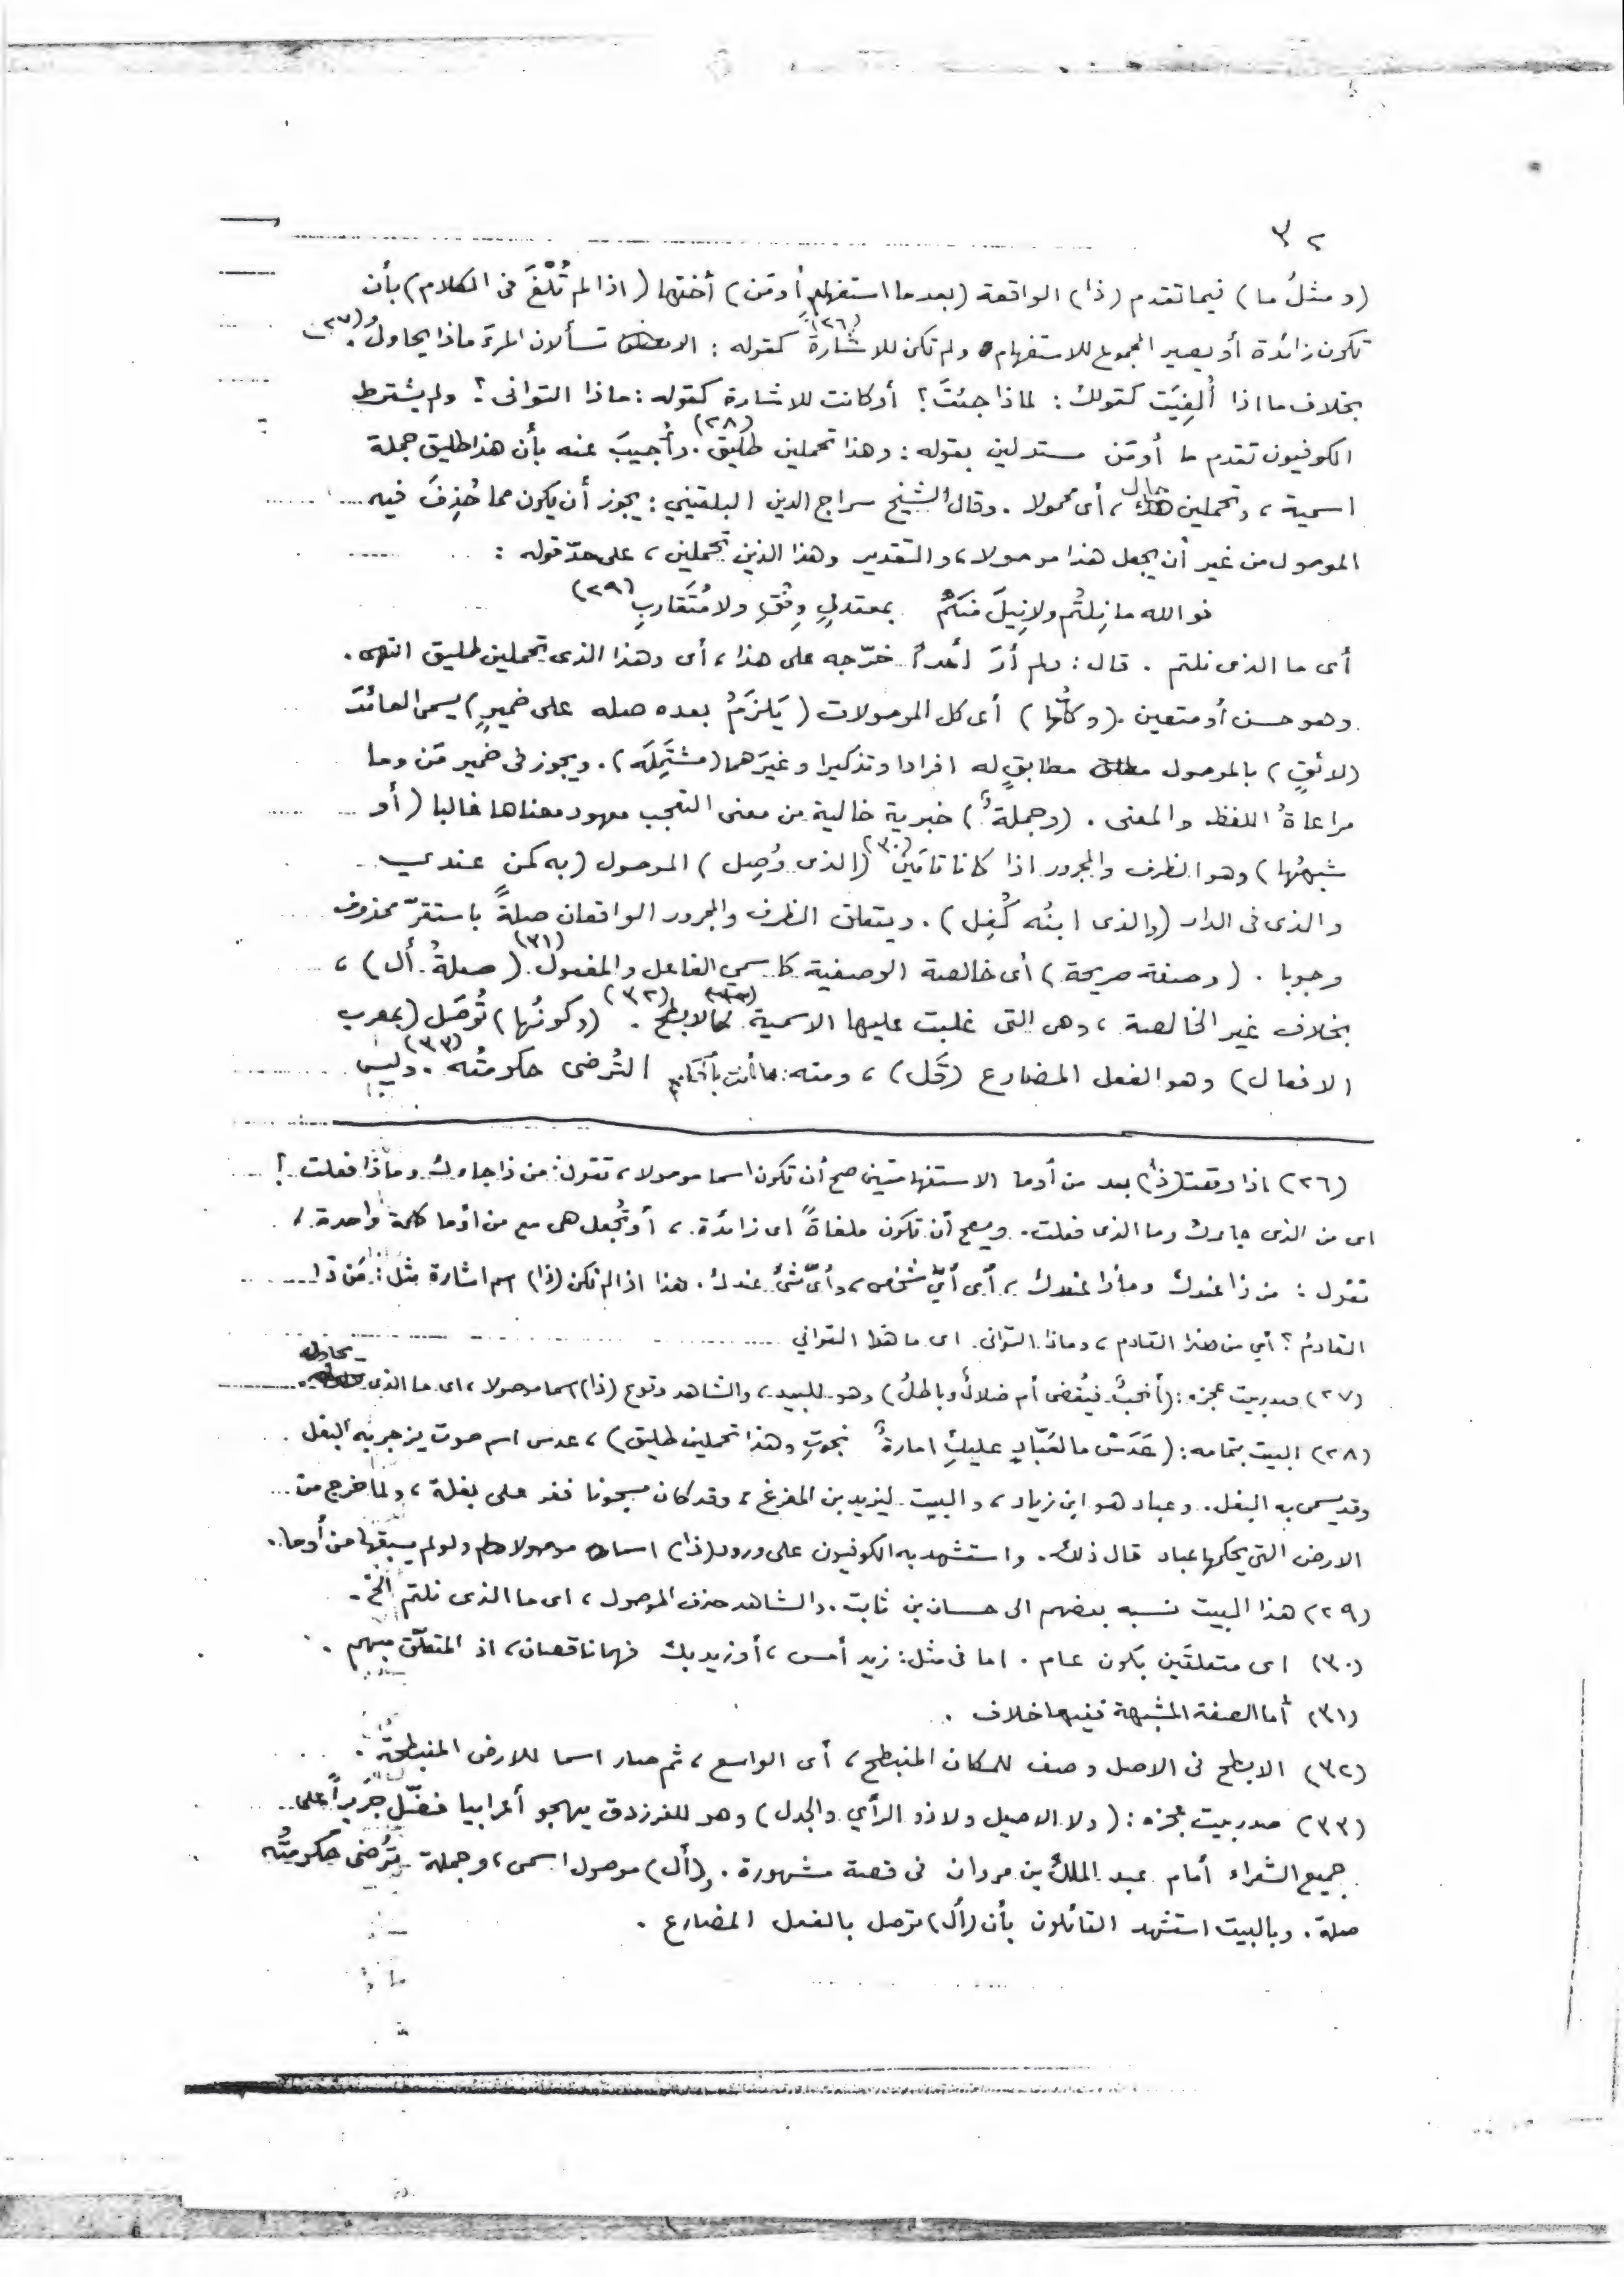 ٣٢
(ومثلُ ما) فيما تقدم (ذا) الواقعة (بعد ما استفهامٍ أو مَن) أختها (اذا لم تُلْغَ في الكلام) بأن
تكون زائدة أو يصير المجموع للاستفهام ولم تكن للاشارة (٢٦) كقوله : الا تسألان المرءَ ماذا يحاولُ (٢٧).
بخلاف ما اذا أُلغِيَت كقولك : لماذا جئتَ؟ أو كانت للاشارة كقوله : ماذا التوانى ؟ ولم يشترط
الكوفيون تقدم ما أو مَن مستدلين بقوله : وهذا تحملين طليق (٢٨). وأُجيبَ عنه بأن هذا طليق جملة
اسمية ، وتحملين حال ، أى محمولا . وقال الشيخ سراج الدين البلقيني : يجوز أن يكون مما حُذِفَ فيه
الموصول من غير أن يجعل هذا موصولا ، والتقدير وهذا الذين تحملين ، على حدّ قوله :
فو الله ما نِلتُم ولا نِيلَ منكُمُ بمعتدلٍ وِفْقٍ ولا مُتَقاربِ (٢٩)
أى ما الذى نلتم . قال : ولم أرَ أحداً خرّجه على هذا ، أى وهذا الذى تحملين طليق انتهى .
وهو حسن أو متعين . (وكلُّها) أى كل الموصولات (يَلزَمُ بعده صله على ضميرٍ) يسمى العائدَ
(لائقٍ) بالموصول مطابقٍ له افرادا وتذكيرا وغيرَهما (مشتَمِلَه) . ويجوز فى ضمير مَن وما
مراعاةُ اللفظ والمعنى . (وجملةٌ) خبرية خالية من معنى التعجب معهود معناها غالبا (أو
شبهُها) وهو الظرف والمجرور اذا كانا تامَين (٣٠) (الذى وُصِل) الموصول (به كمن عندي
والذى فى الدار (والذى ابنُه كُفِل) . ويتعلق الظرف والمجرور الواقعان صلةً باستقرّ محذوف
وجوبا . (وصفة صريحة) أى خالصة الوصفية كاسمي الفاعل والمفعول (٣١) (صلةُ أل) ،
بخلاف غير الخالصة ، وهى التى غلبت عليها الاسمية كالابطح (٣٢) . (وكونُها) تُوصَل (بمعرب
الافعال) وهو الفعل المضارع (قَل) ، ومنه : ما أنت بالحَكَمِ التُرضى حكومتُه (٣٣) . وليس
(٢٦) اذا وقعت (ذا) بعد من أو ما الاستفهامتين صح أن تكون اسما موصولا ، تقول : من ذا جاءك وماذا فعلت ؟
اى من الذى جاءك وما الذى فعلت . ويصح أن تكون ملغاةً اى زائدة ، أو تُجعل هى مع من أو ما كلمة واحدة ،
تقول : من ذا عندك وماذا عندك ، أى أيُّ شخص ، وأىّ شئ عندك . هذا اذا لم تكن (ذا) اسم اشارة مثل : مَن ذا
القادمُ ؟ أي من هذا القادم ، وماذا التوانى . اى ما هذا التواني
(٢٧) صدر بيت عجزه : (أنحبٌ فيُقضى أم ضلالٌ وباطلُ) وهو للبيد ، والشاهد وقوع (ذا) اسما موصولا ، اى ما الذى يحاوله
(٢٨) البيت بتمامه : (عَدَسْ ما لعَبّادٍ عليكِ امارةٌ نجوتِ وهذا تحملين طليق) ، عدس اسم صوت يزجر به البغل .
وقد يسمى به البغل . وعباد هو ابن زياد ، والبيت ليزيد بن المفرغ ، وقد كان مسجونا ففر على بغلة ، ولما خرج من
الارض التى يحكمها عباد قال ذلك . واستشهد به الكوفيون على ورود (ذا) اسما موصولا ولو لم يسبقها من أو ما .
(٢٩) هذا البيت نسبه بعضهم الى حسان بن ثابت . والشاهد حذف الموصول ، اى ما الذى نلتم الخ .
(٣٠) اى متعلقَين بكون عام . اما فى مثل : زيد أمس ، أو زيد بك فهما ناقصان ، اذ المتعلَّق مبهم .
(٣١) أما الصفة المشبهة ففيها خلاف .
(٣٢) الابطح فى الاصل وصف للمكان المنبطح ، أى الواسع ، ثم صار اسما للارض المنبطحة .
(٣٣) صدر بيت عجزه : (ولا الاصيل ولا ذو الرأي والجدل) وهو للفرزدق يهجو أعرابيا فضّل جريراً على
جميع الشعراء أمام عبد الملك بن مروان فى قصة مشهورة . و(أل) موصول اسمى ، وجملة تُرضى حكومتُه
صلة . وبالبيت استشهد القائلون بأن (أل) توصل بالفعل المضارع .